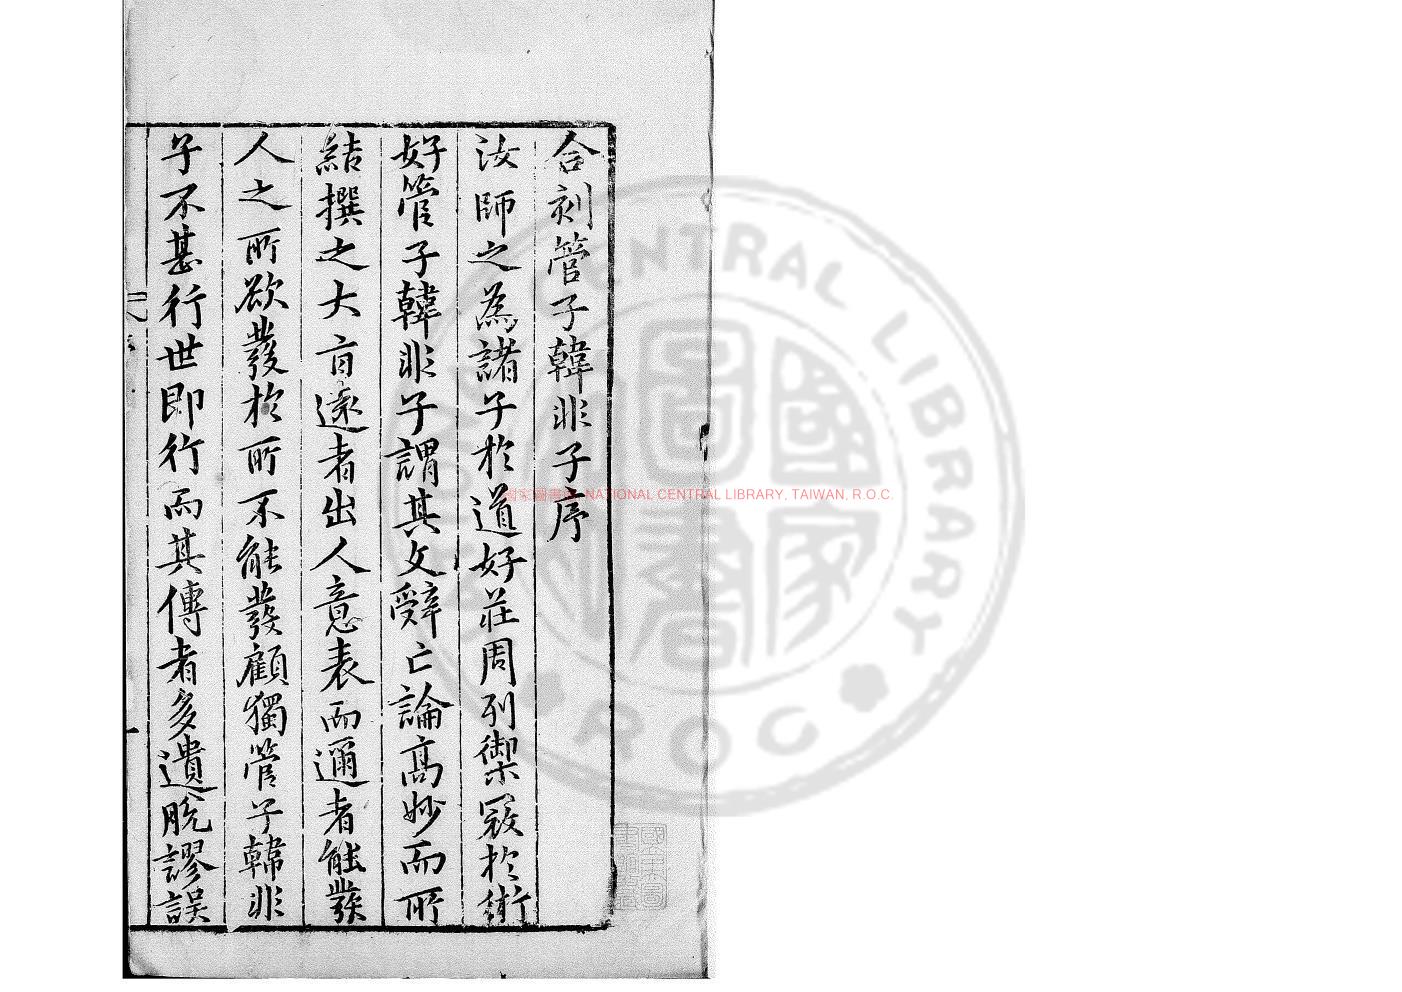 合刻管子韓非子序
汝師之為諸子於道好莊周列禦寇於術
好管子韓非子謂其文辭亡論高妙而所
結撰之大旨遠者出人意表而邇者能發
人之所欲發於所不能發顧獨管子韓非
子不甚行世即行而其傳者多遺脫謬誤
國家圖書館 NATIONAL CENTRAL LIBRARY, TAIWAN, R.O.C.
NATIONAL CENTRAL LIBRARY
ROC
國家圖書